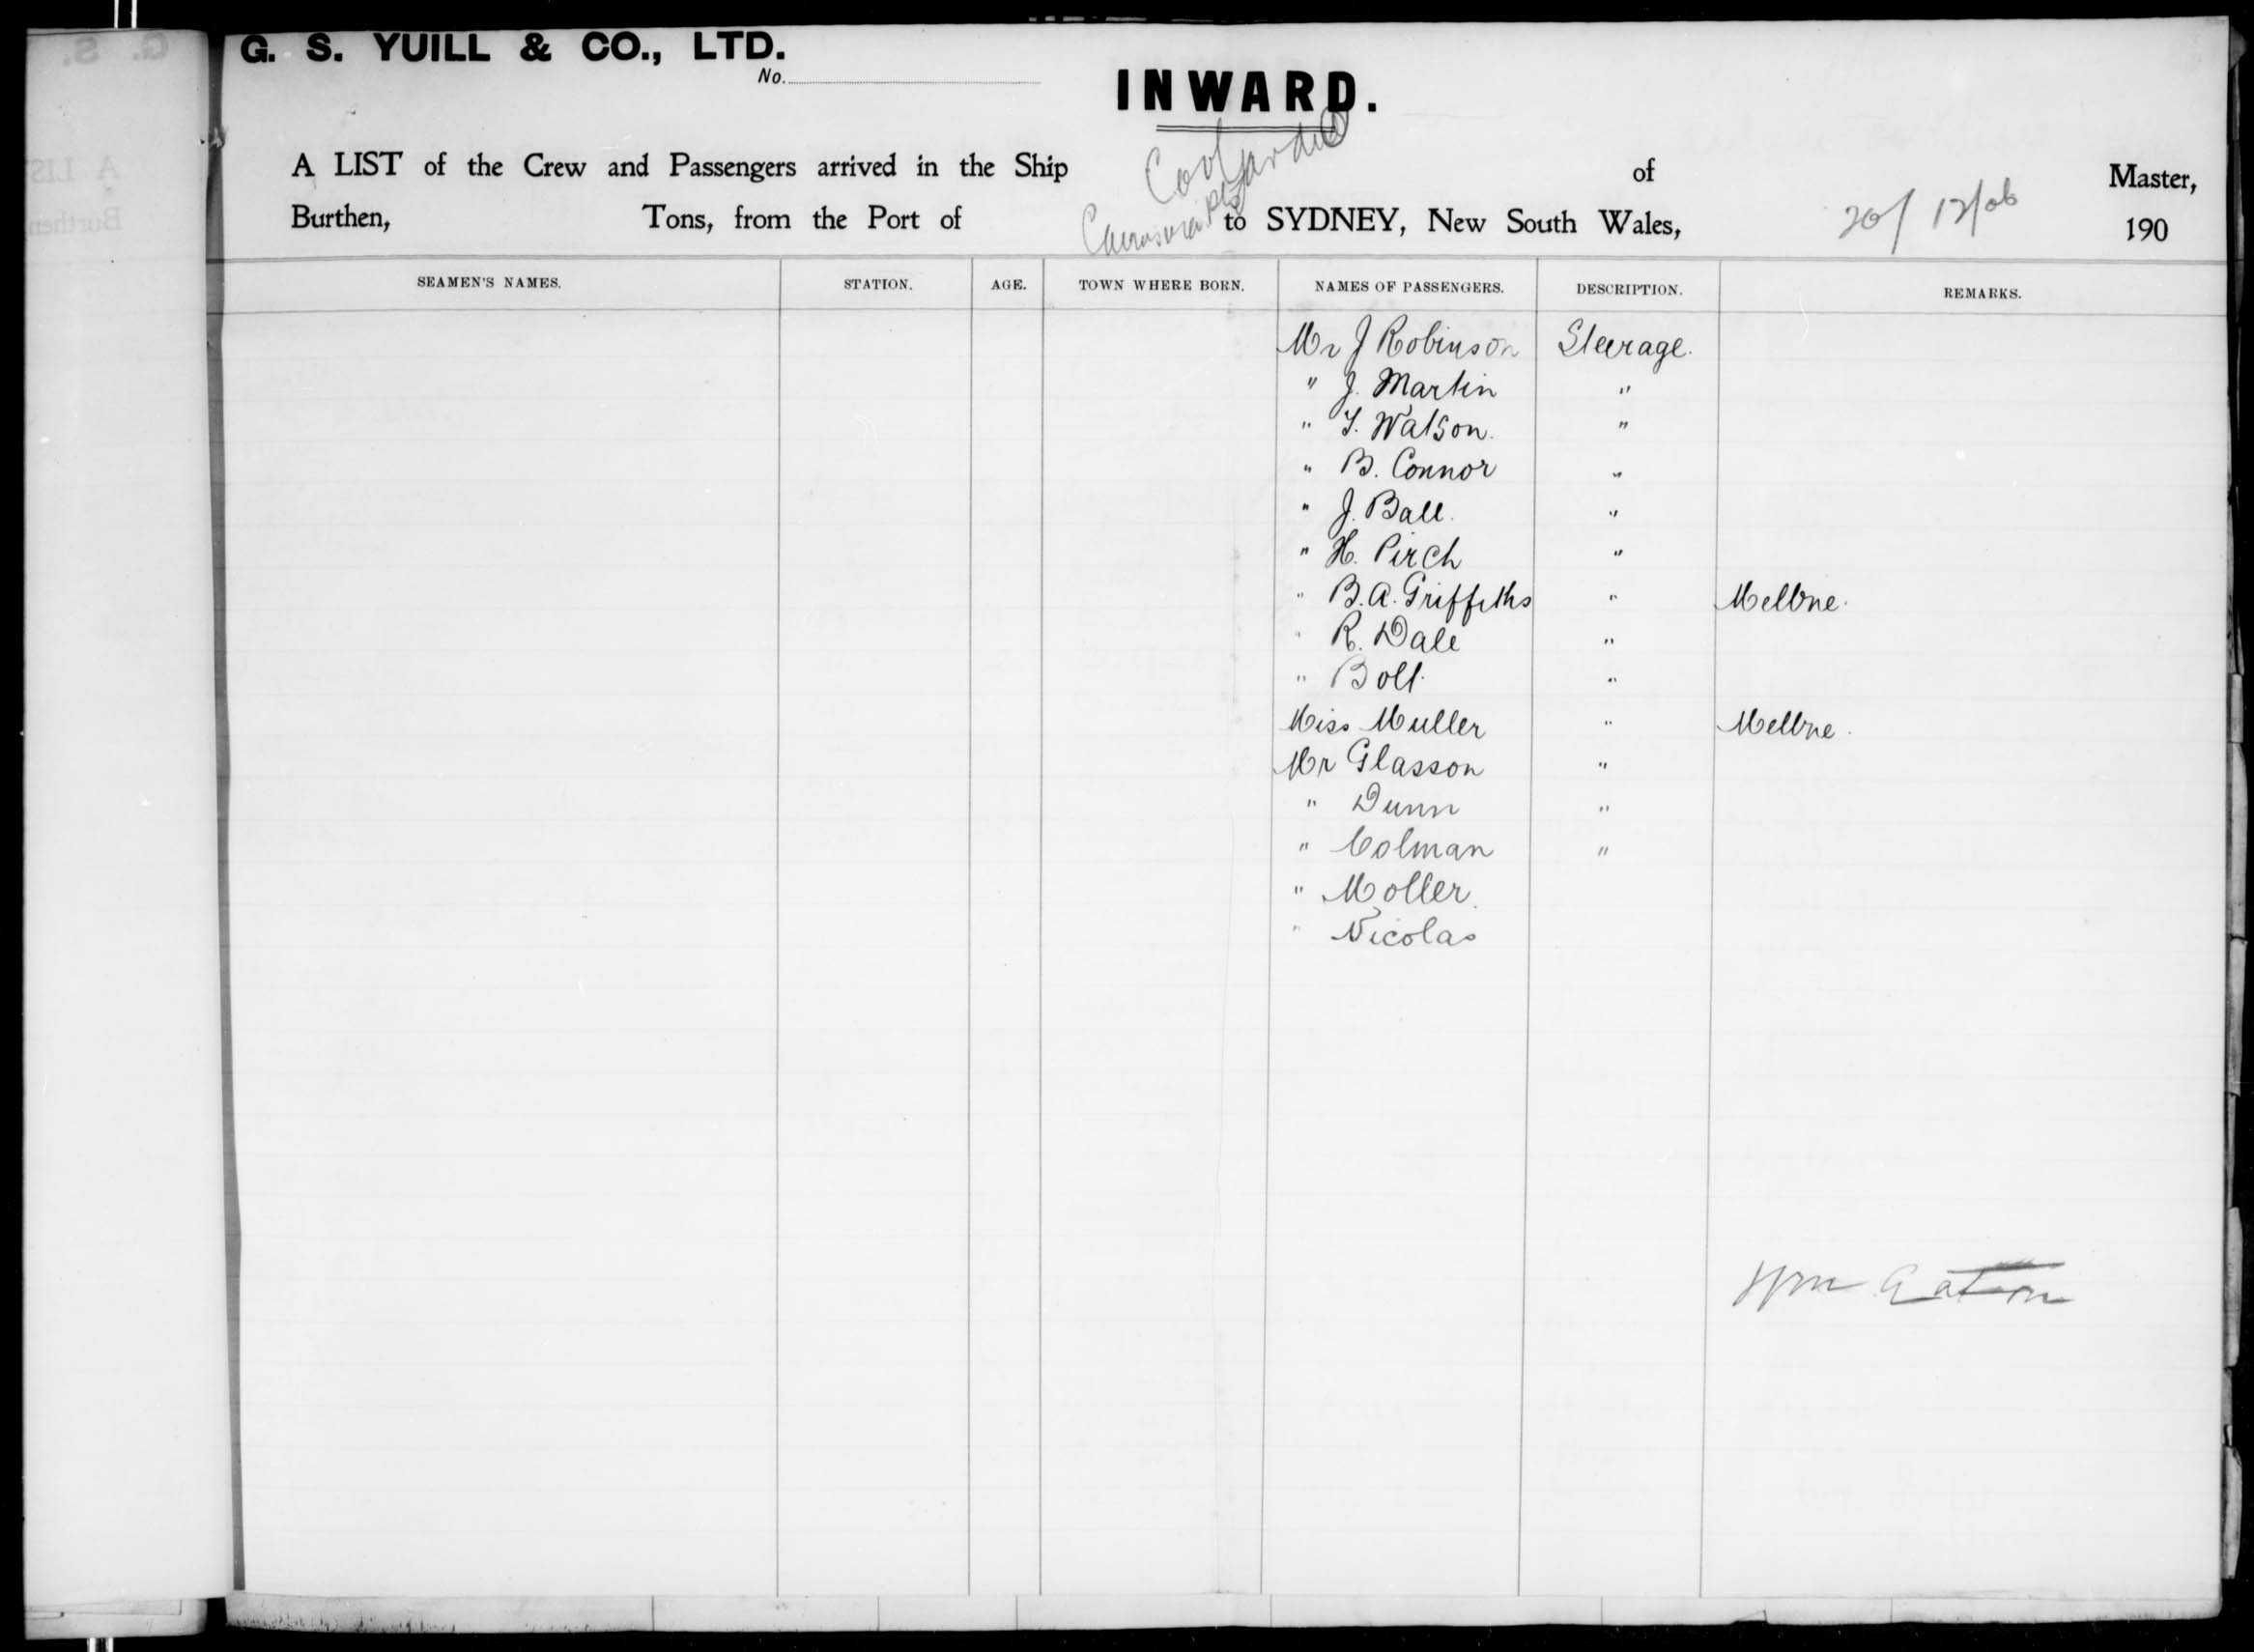 G. S. YUILL & CO., LTD.
No.
INWARD.
Coolgardie
A LIST of the Crew and Passengers arrived in the Ship of Master,
Burthen, Tons, from the Port of to SYDNEY, New South Wales, 20/12/06 190
SEAMEN'S NAMES. STATION. AGE. TOWN WHERE BORN. NAMES OF PASSENGERS. DESCRIPTION. REMARKS.
Mr J Robinson Steerage.
" J. Martin "
" T. Watson. "
" B. Connor "
" J. Ball. "
" H. Pirch "
" B. A. Griffiths " Melbne.
" R. Dale "
" Bolt. "
Miss Muller " Melbne.
Mr Glasson "
" Dunn "
" Colman "
" Moller.
" Nicolas
Wm Eaton